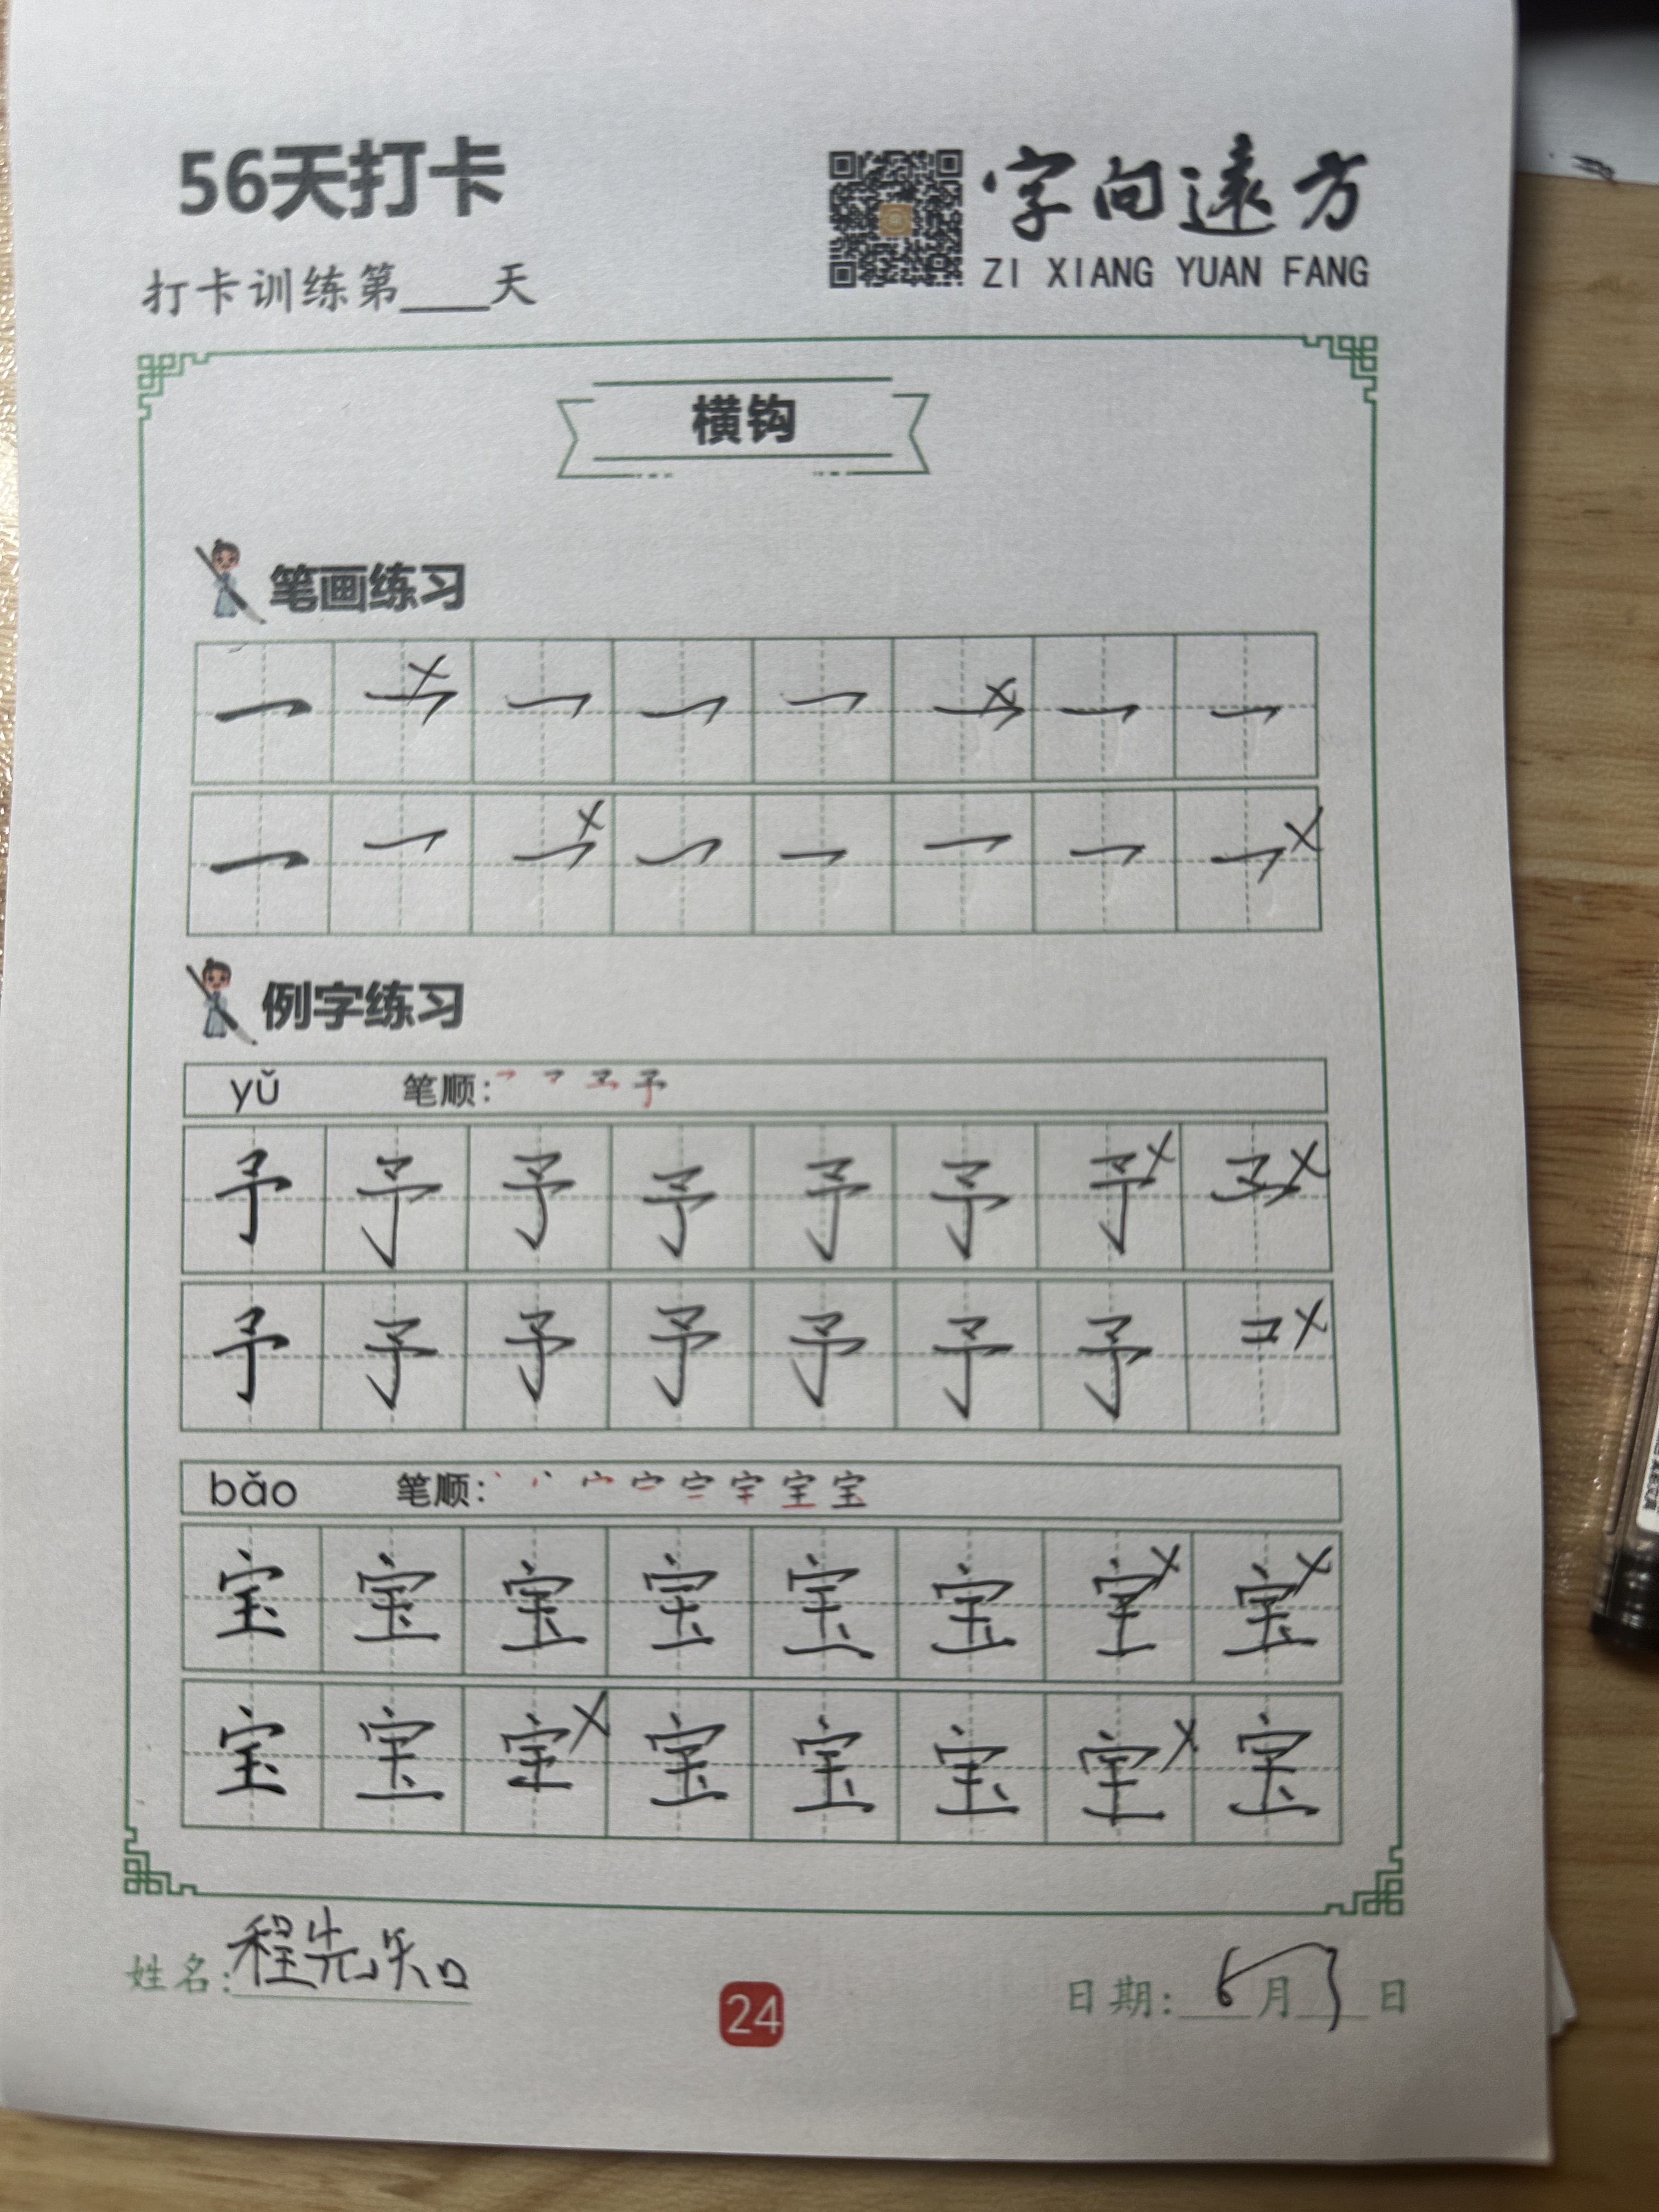 56天打卡
字向遠方
ZI XIANG YUAN FANG
打卡训练第____天
横钩
笔画练习
例字练习
yǔ 笔顺:
予 予 予 予 予 予 予
予 予 予 予 予 予 予
bǎo 笔顺:
宝 宝 宝 宝 宝 宝 宝 宝
宝 宝 宝 宝 宝 宝 宝 宝
姓名:程先知
24
日期: 6月 日